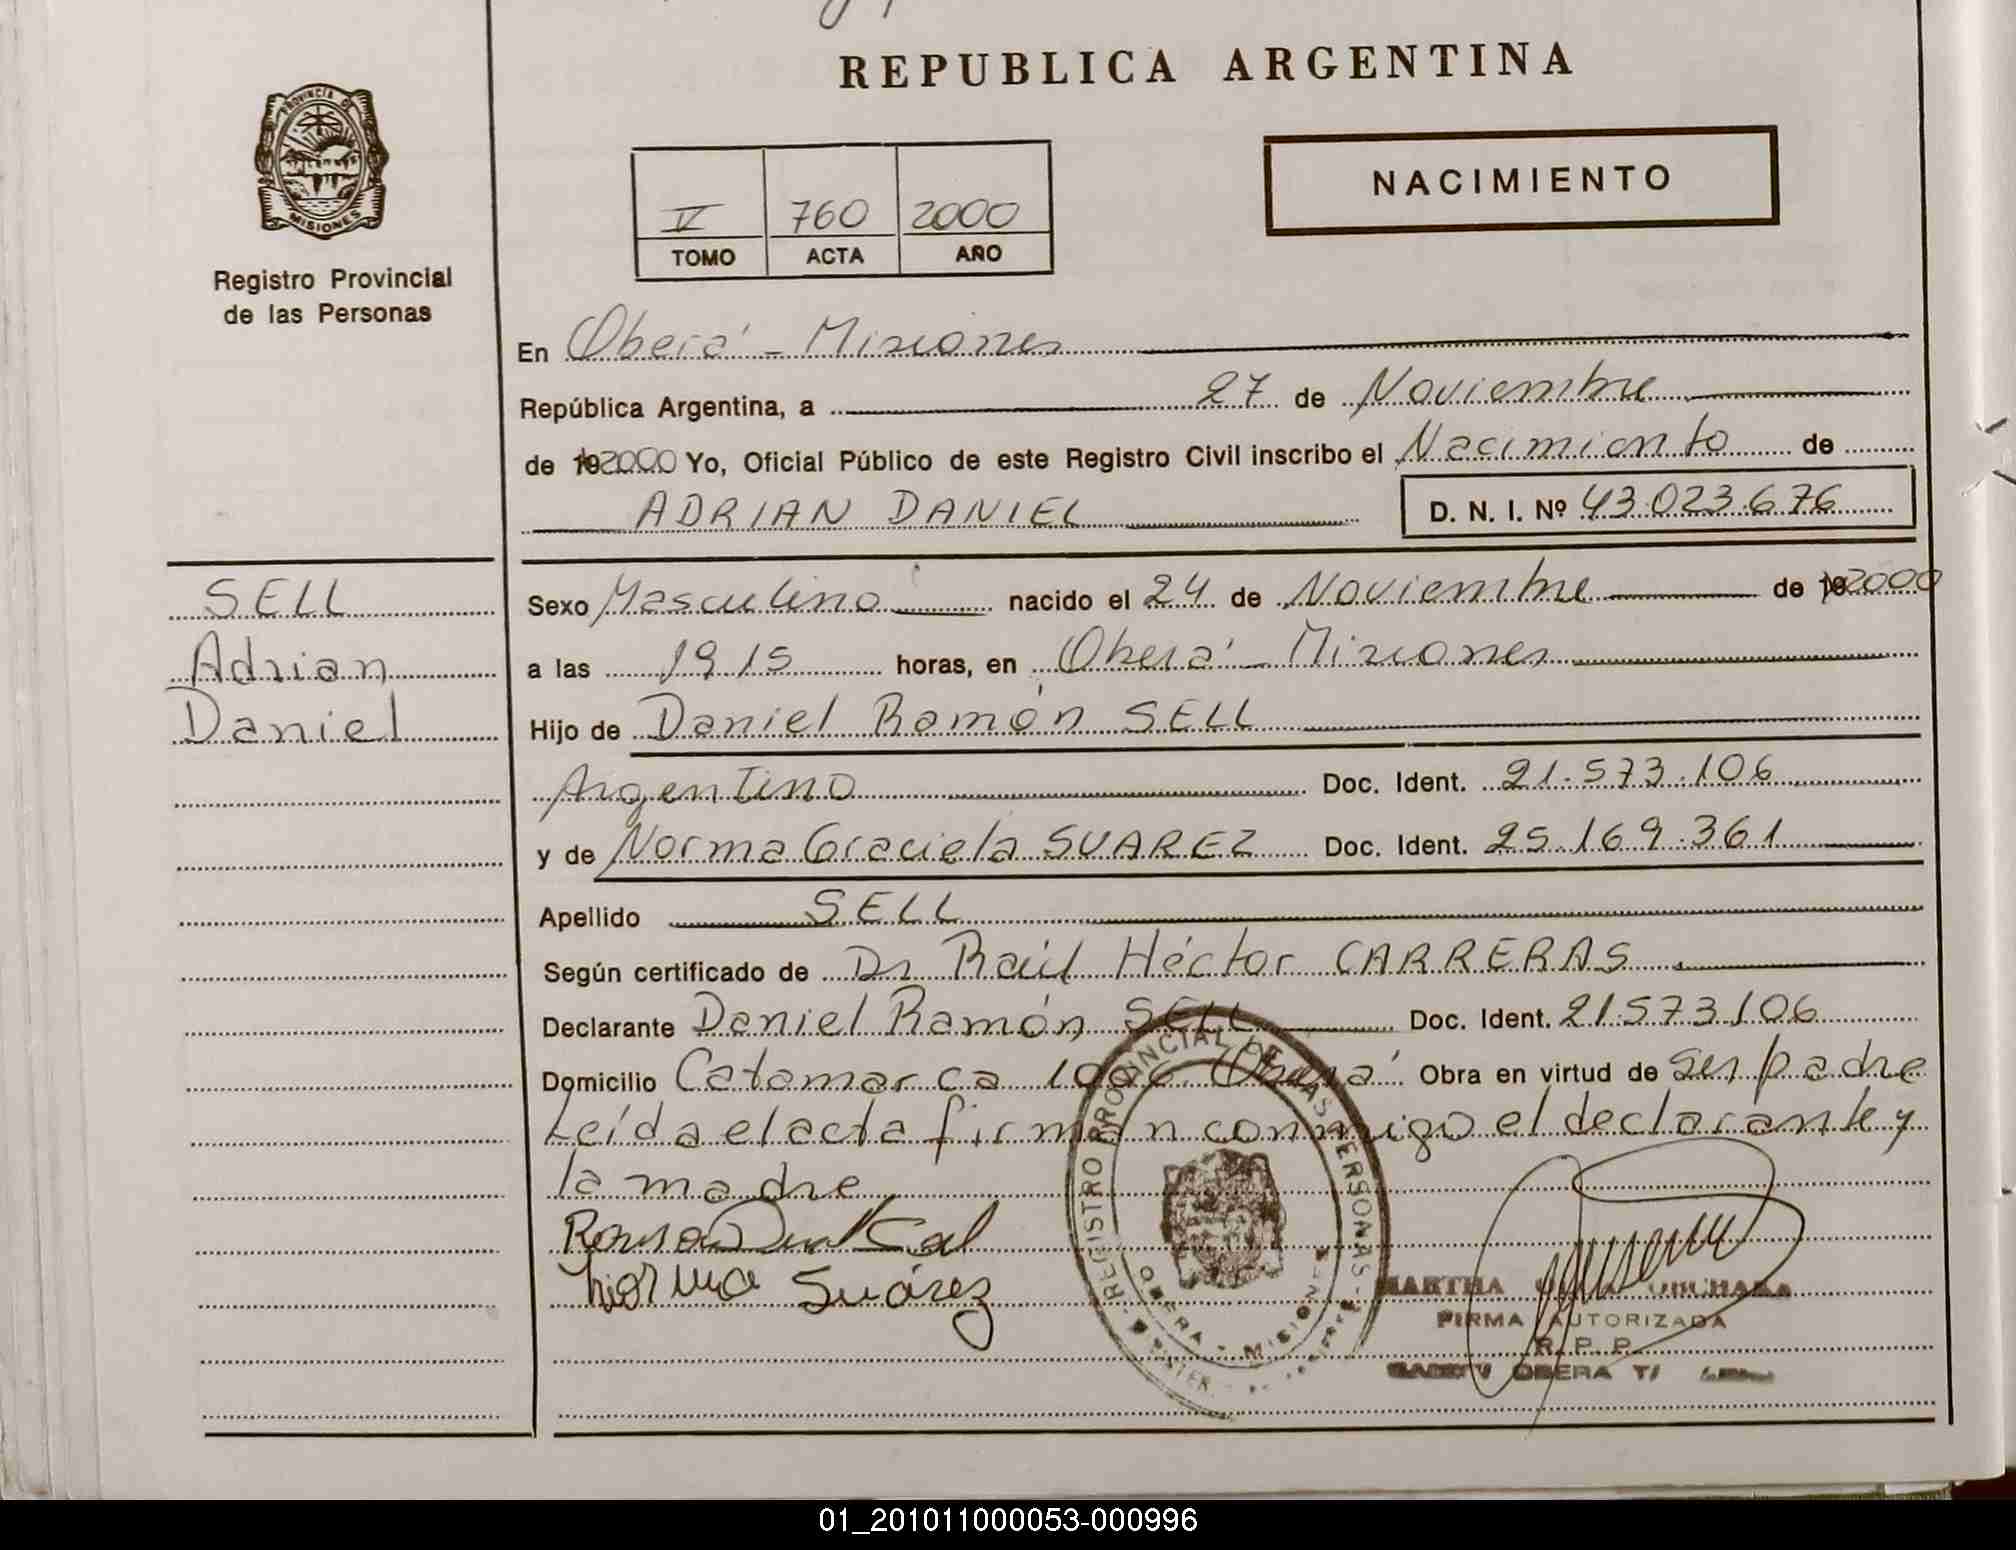 REPUBLICA ARGENTINA
PROVINCIA DE
MISIONES
Registro Provincial
de las Personas
IV 760 2000
TOMO ACTA AÑO
NACIMIENTO
En Oberá - Misiones
República Argentina, a 27 de Noviembre
de 19 2000 Yo, Oficial Público de este Registro Civil inscribo el Nacimiento de
ADRIAN DANIEL D. N. I. Nº 43.023.676
SELL
Adrian
Daniel
Sexo Masculino nacido el 24 de Noviembre de 19 2000
a las 19.15 horas, en Oberá - Misiones
Hijo de Daniel Ramón SELL
Argentino Doc. Ident. 21.573.106
y de Norma Graciela SUAREZ Doc. Ident. 25.169.361
Apellido SELL
Según certificado de Dr Raúl Héctor CARRERAS
Declarante Daniel Ramón SELL Doc. Ident. 21.573.106
Domicilio Catamarca Oberá Obra en virtud de ser padre
Leída el acta firman conmigo el declarante y
la madre
Norma Suárez
REGISTRO PROVINCIAL DE LAS PERSONAS
OBERA - MISIONES
MARTHA
FIRMA AUTORIZADA
R. P. P.
OBERA
01_201011000053-000996